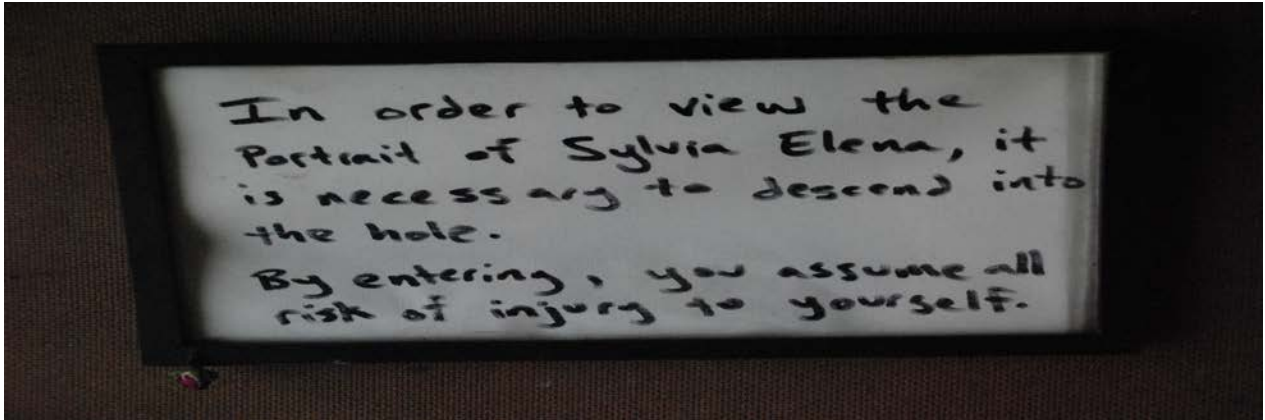 In order to view the
Portrait of Sylvia Elena, it
is necessary to descend into
the hole.
By entering, you assume all
risk of injury to yourself.